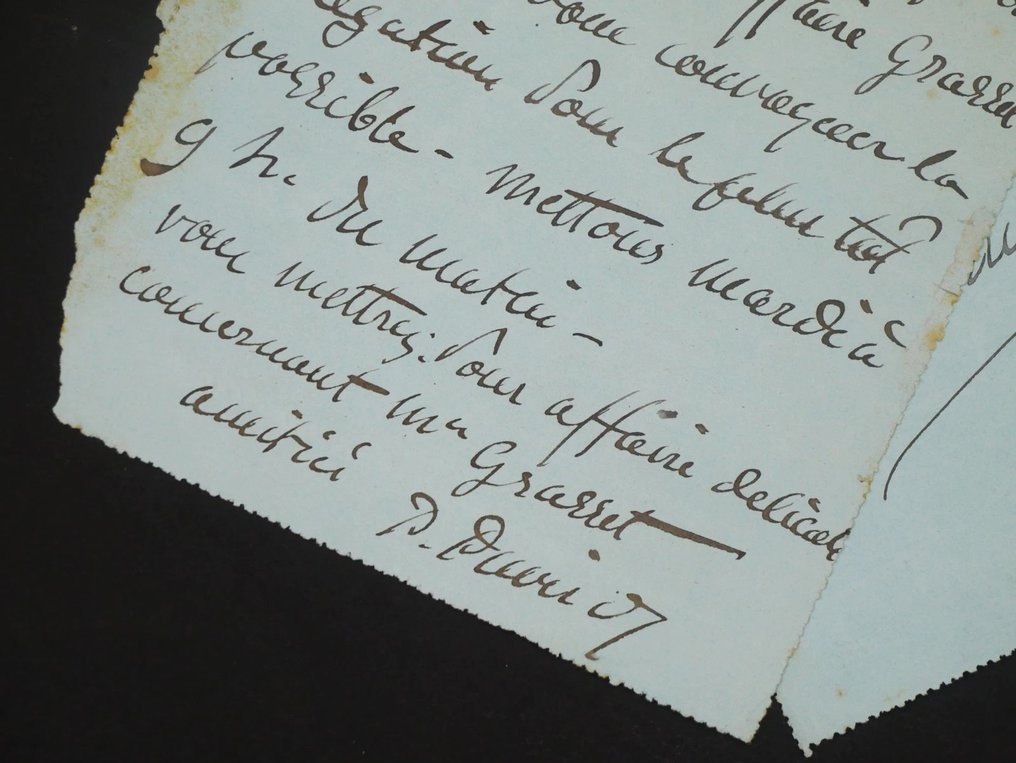 affaire Grasset
vous convoquer la
egation pour le plus tôt
possible - mettons mardi à
9 h. du matin -
vous mettrez: pour affaire délicate
concernant mr Grasset
amitiés